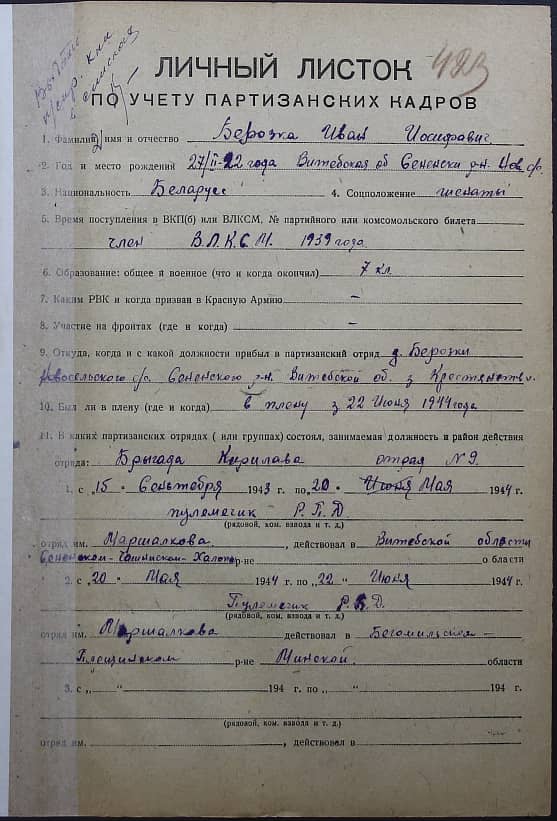 ЛИЧНЫЙ ЛИСТОК 423
ПО УЧЕТУ ПАРТИЗАНСКИХ КАДРОВ
1. Фамилия, имя и отчество Берозка Иван Иосифович
2. Год и место рождения 27/II-22 года Витебская об Сененски р-н. Нов с/с.
3. Национальность Беларусс 4. Соцположение женаты
5. Время поступления в ВКП(б) или ВЛКСМ, № партийного или комсомольского билета
член В.Л.К.С.М. 1939 года
6. Образование: общее й военное (что и когда окончил) 7 кл.
7. Каким РВК и когда призван в Красную Армию —
8. Участие на фронтах (где и когда) —
9. Откуда, когда и с какой должности прибыл в партизанский отряд д. Берозки
Новосельского с/с. Сененского р-н. Витебской об. з Крестянство.
10. Был ли в плену (где и когда) в плену з 22 Июня 1944 года
11. В каких партизанских отрядах ( или группах) состоял, занимаемая должность и район действия
отряда: Брыгада Кирилава отряд №9.
1. с „15 " Сентебря 1943 г. по „20 " Июня Мая 1944 г.
пулемегик Р.П.Д
(рядовой, ком. взвода и т. д.)
отряд им. Маршалкова , действовал в Витебской области
р-не области
2. с „20 " Мая 1944 г. по „22 " Июня 1944 г.
Пулемегик Р.П.Д.
(рядовой, ком. взвода и т. д.)
отряд им. Маршалкова действовал в Бегомильском –
Плещинском р-не Минской области
3. с „ " 194 г. по „ " 194 г.
(рядовой, ком. взвода и т. д.)
отряд им. , действовал в